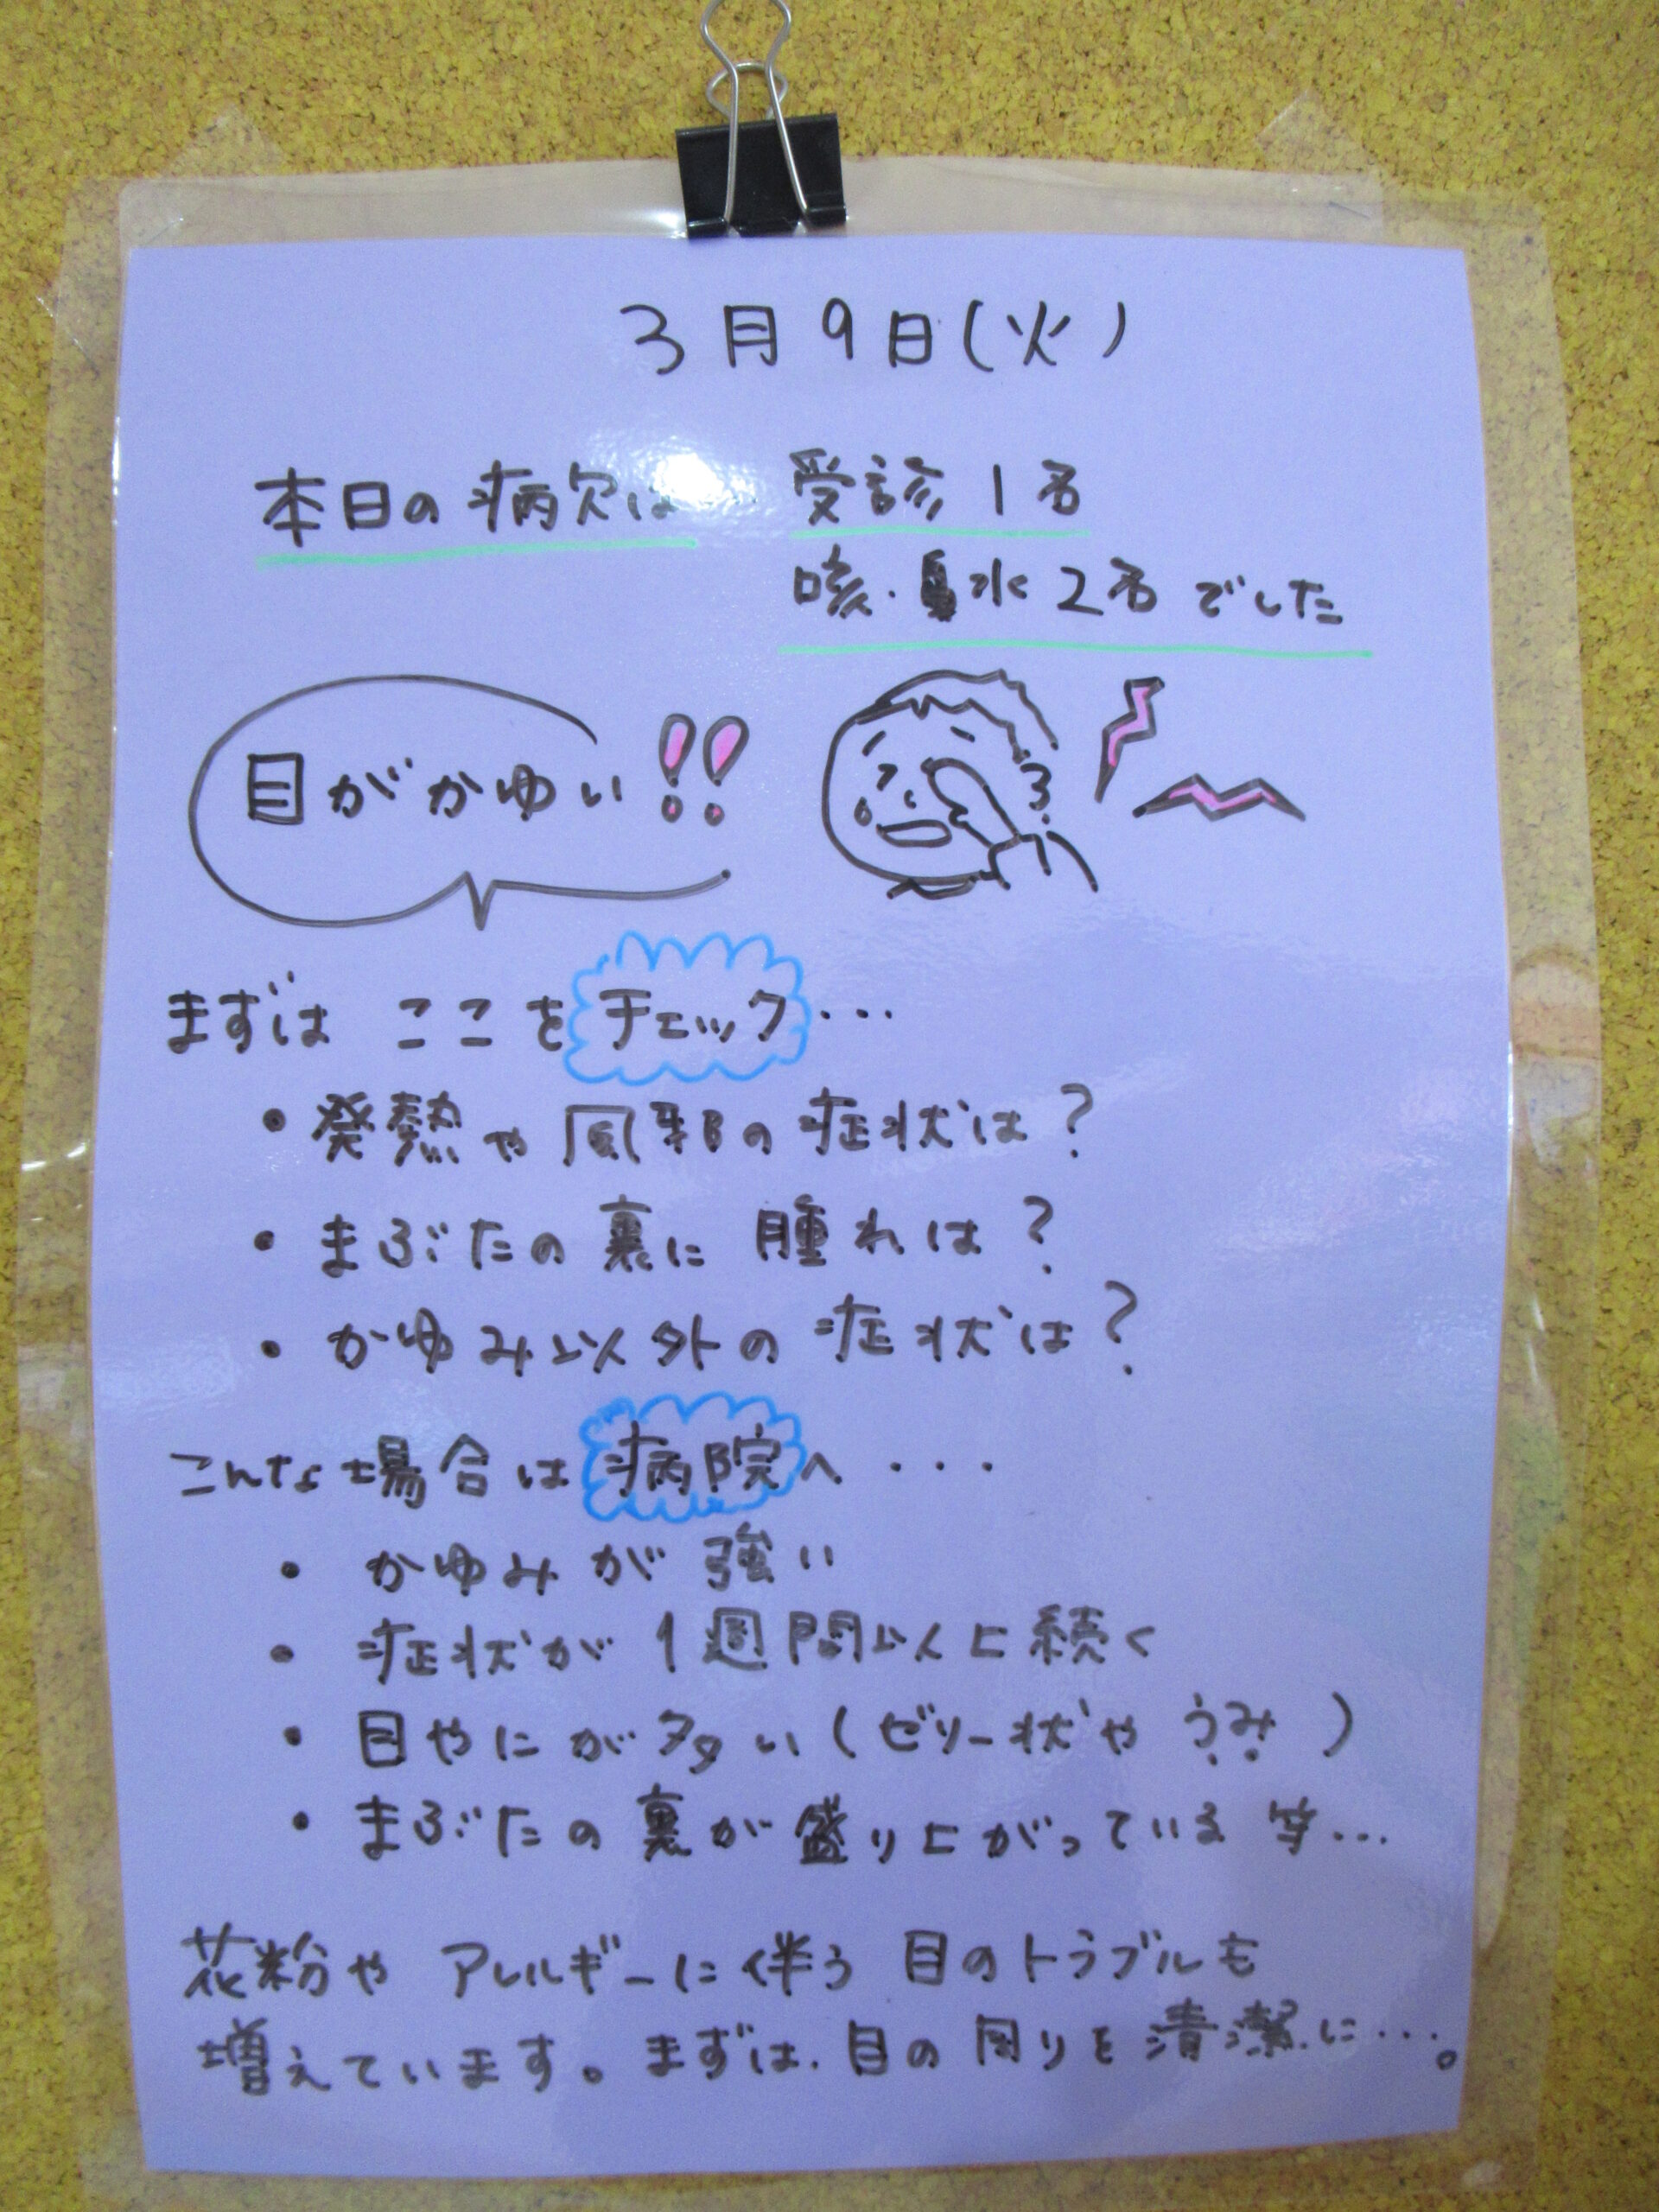 3月9日(火)
本日の病欠は 受診1名
咳・鼻水2名でした
目がかゆい!!
まずは ここをチェック...
・発熱や風邪の症状は?
・まぶたの裏に腫れは?
・かゆみ以外の症状は?
こんな場合は病院へ...
・かゆみが強い
・症状が1週間以上続く
・目やにが多い(ゼリー状やうみ)
・まぶたの裏が盛り上がっている 等...
花粉やアレルギーに伴う 目のトラブルも
増えています。まずは、目の周りを清潔に...。